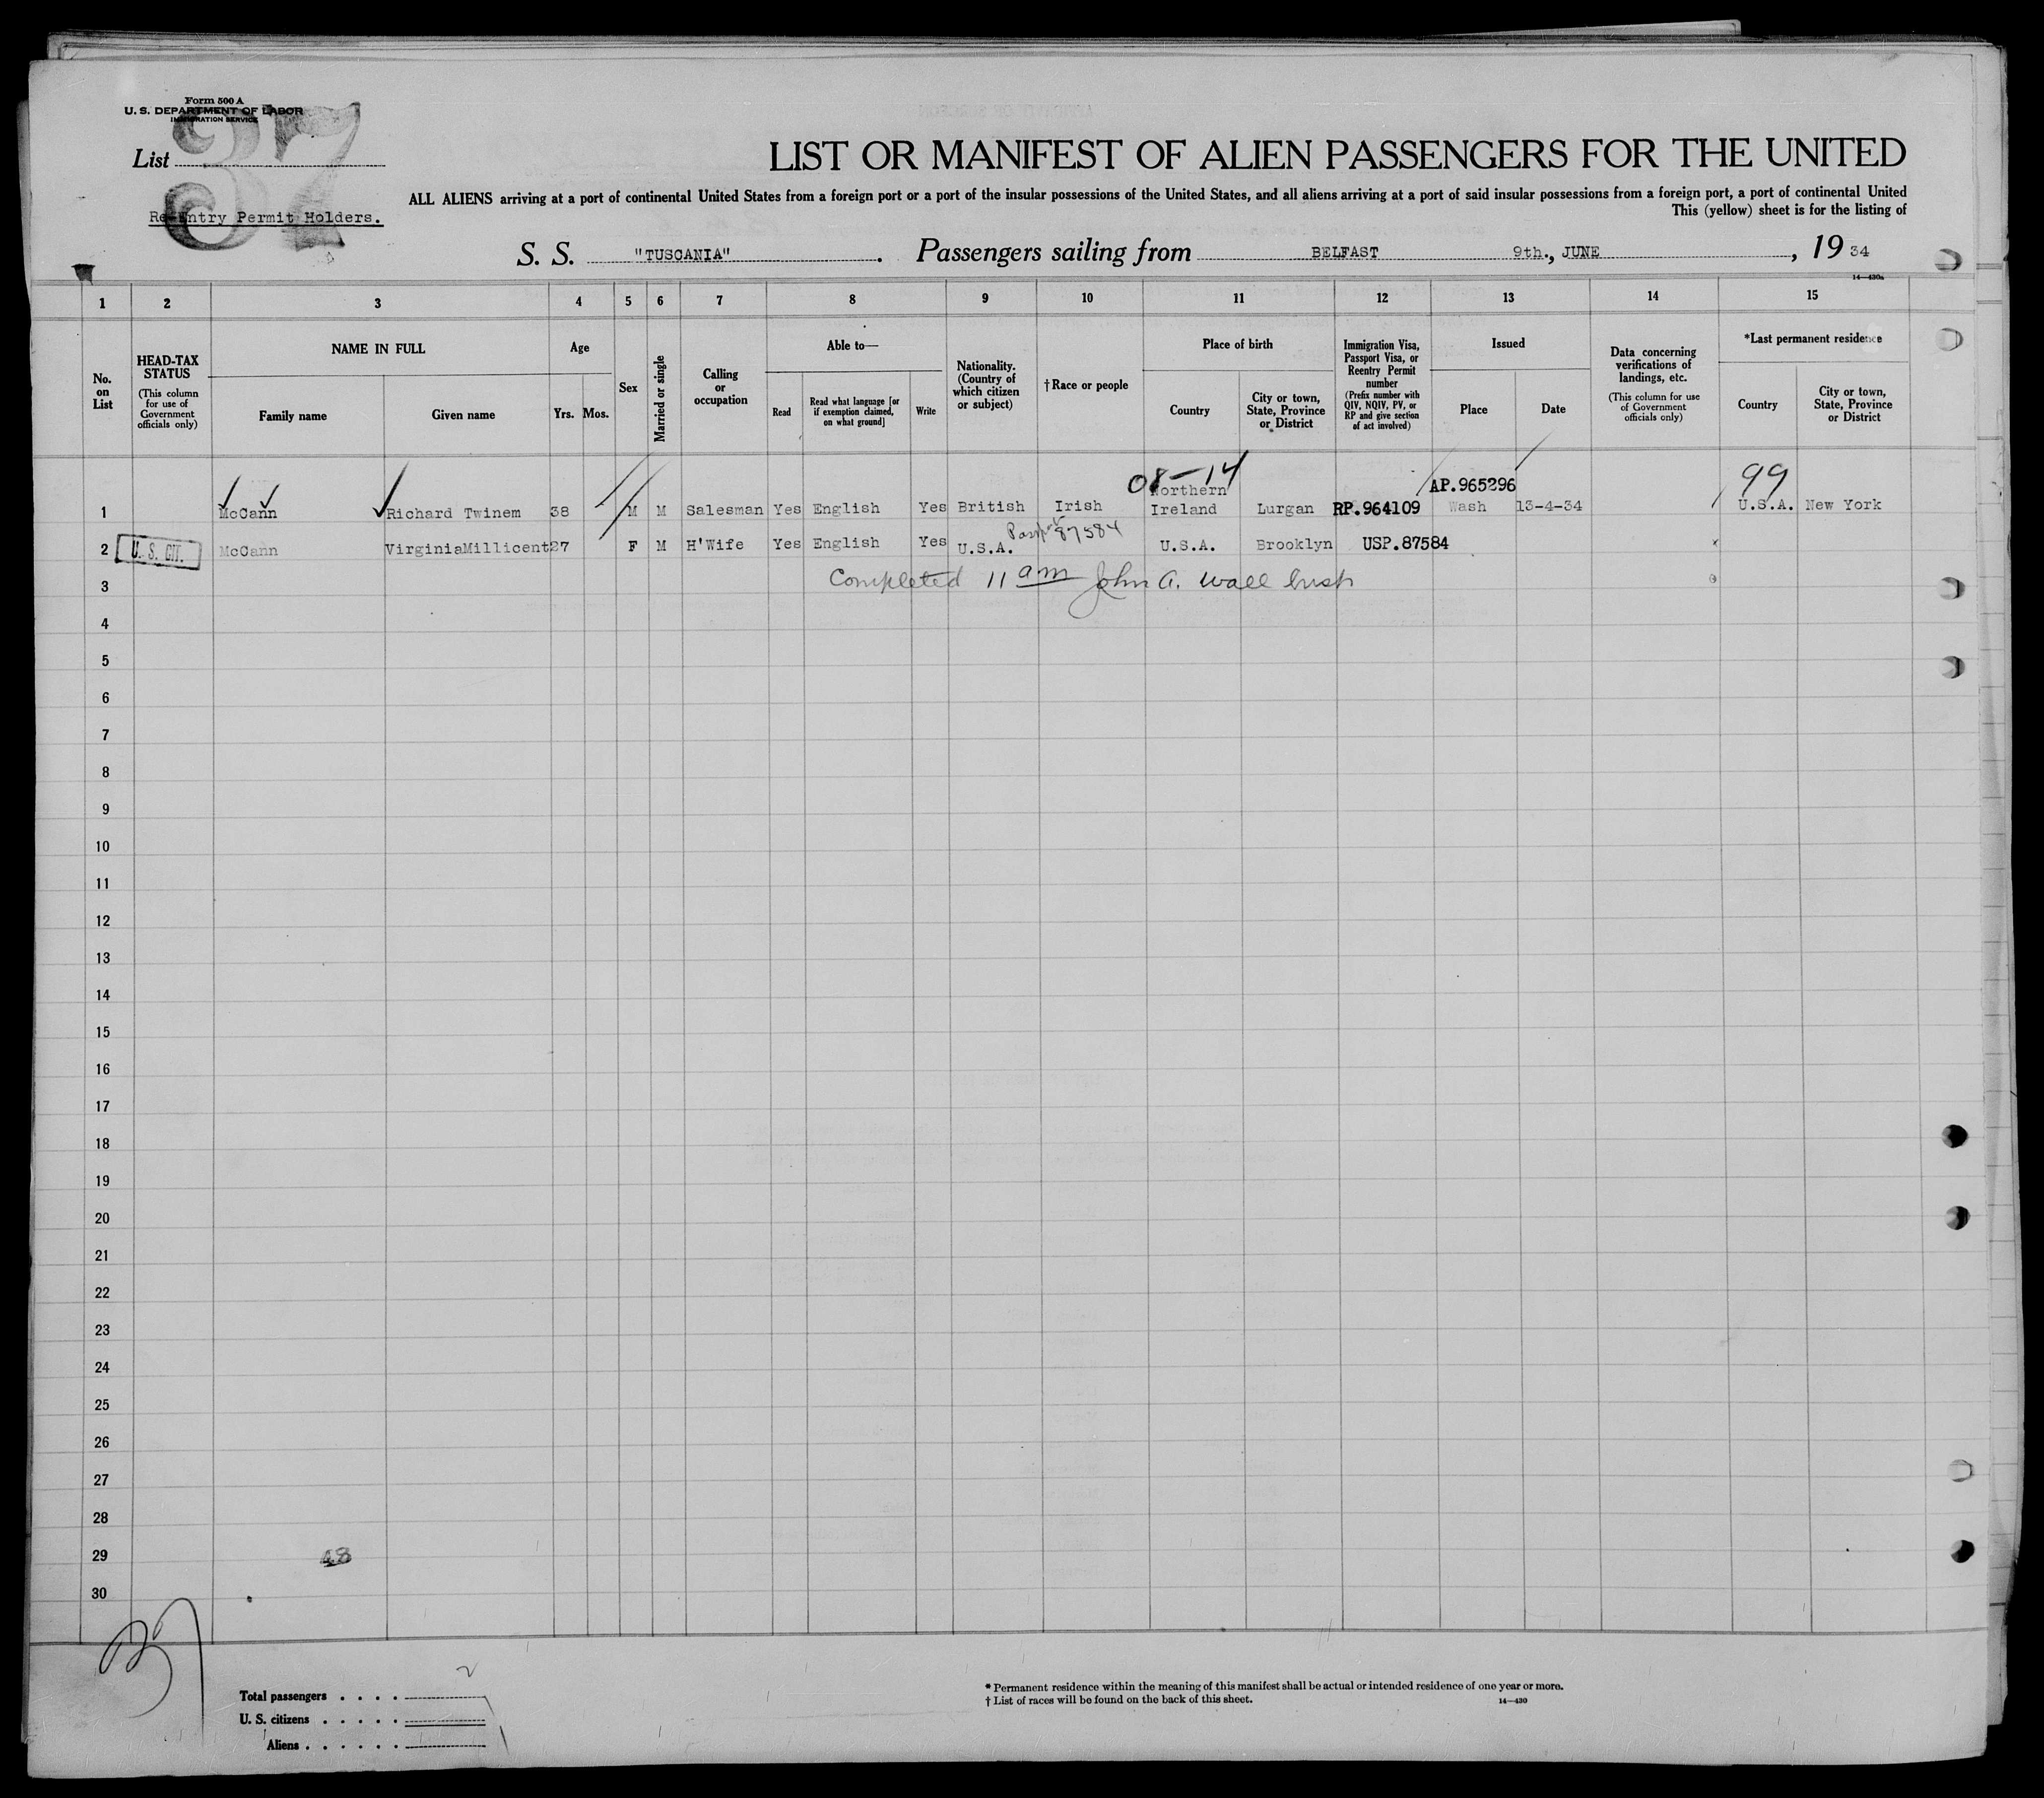 Form 500 A
U. S. DEPARTMENT OF LABOR
IMMIGRATION SERVICE
37
List
Re-Entry Permit Holders.
LIST OR MANIFEST OF ALIEN PASSENGERS FOR THE UNITED
ALL ALIENS arriving at a port of continental United States from a foreign port or a port of the insular possessions of the United States, and all aliens arriving at a port of said insular possessions from a foreign port, a port of continental United
This (yellow) sheet is for the listing of
S. S. "TUSCANIA". Passengers sailing from BELFAST 9th., JUNE, 19 34
14—430a
1 2 3 4 5 6 7 8 9 10 11 12 13 14 15
No. on List
HEAD-TAX STATUS
(This column for use of Government officials only)
NAME IN FULL
Family name
Given name
Age
Yrs. Mos.
Sex
Married or single
Calling or occupation
Able to—
Read
Read what language [or if exemption claimed, on what ground]
Write
Nationality. (Country of which citizen or subject)
†Race or people
Place of birth
Country
City or town, State, Province or District
Immigration Visa, Passport Visa, or Reentry Permit number
(Prefix number with QIV, NQIV, PV, or RP and give section of act involved)
Issued
Place
Date
Data concerning verifications of landings, etc.
(This column for use of Government officials only)
*Last permanent residence
Country
City or town, State, Province or District
08-14
99
AP.965296
1 McCann Richard Twinem 38 M M Salesman Yes English Yes British Irish Northern Ireland Lurgan RP.964109 Wash 13-4-34 U.S.A. New York
Passport 87584
2 U. S. CIT. McCann VirginiaMillicent 27 F M H'Wife Yes English Yes U.S.A. U.S.A. Brooklyn USP.87584
3 Completed 11 am John A. Wall Insp
4
5
6
7
8
9
10
11
12
13
14
15
16
17
18
19
20
21
22
23
24
25
26
27
28
29
30
37
Total passengers . . . . 2
U. S. citizens . . . . .
Aliens . . . . . .
* Permanent residence within the meaning of this manifest shall be actual or intended residence of one year or more.
† List of races will be found on the back of this sheet.
14—430